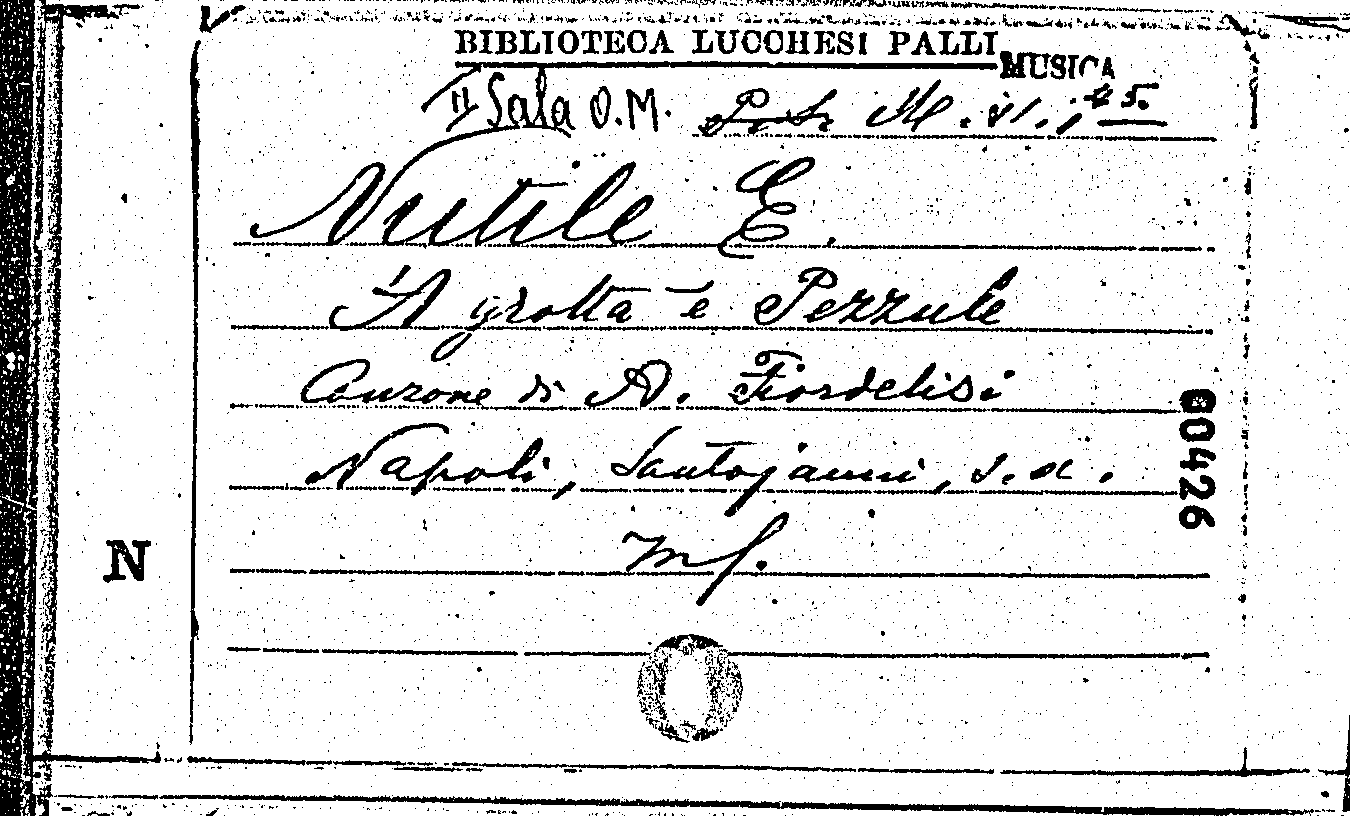 BIBLIOTECA LUCCHESI PALLI
MUSICA
II Sala O.M.
Nutile E.
'A grotta 'e Pezzule
Canzone di A. Fiordelisi
Napoli, Santojanni, s.d.
mf.
N
00426